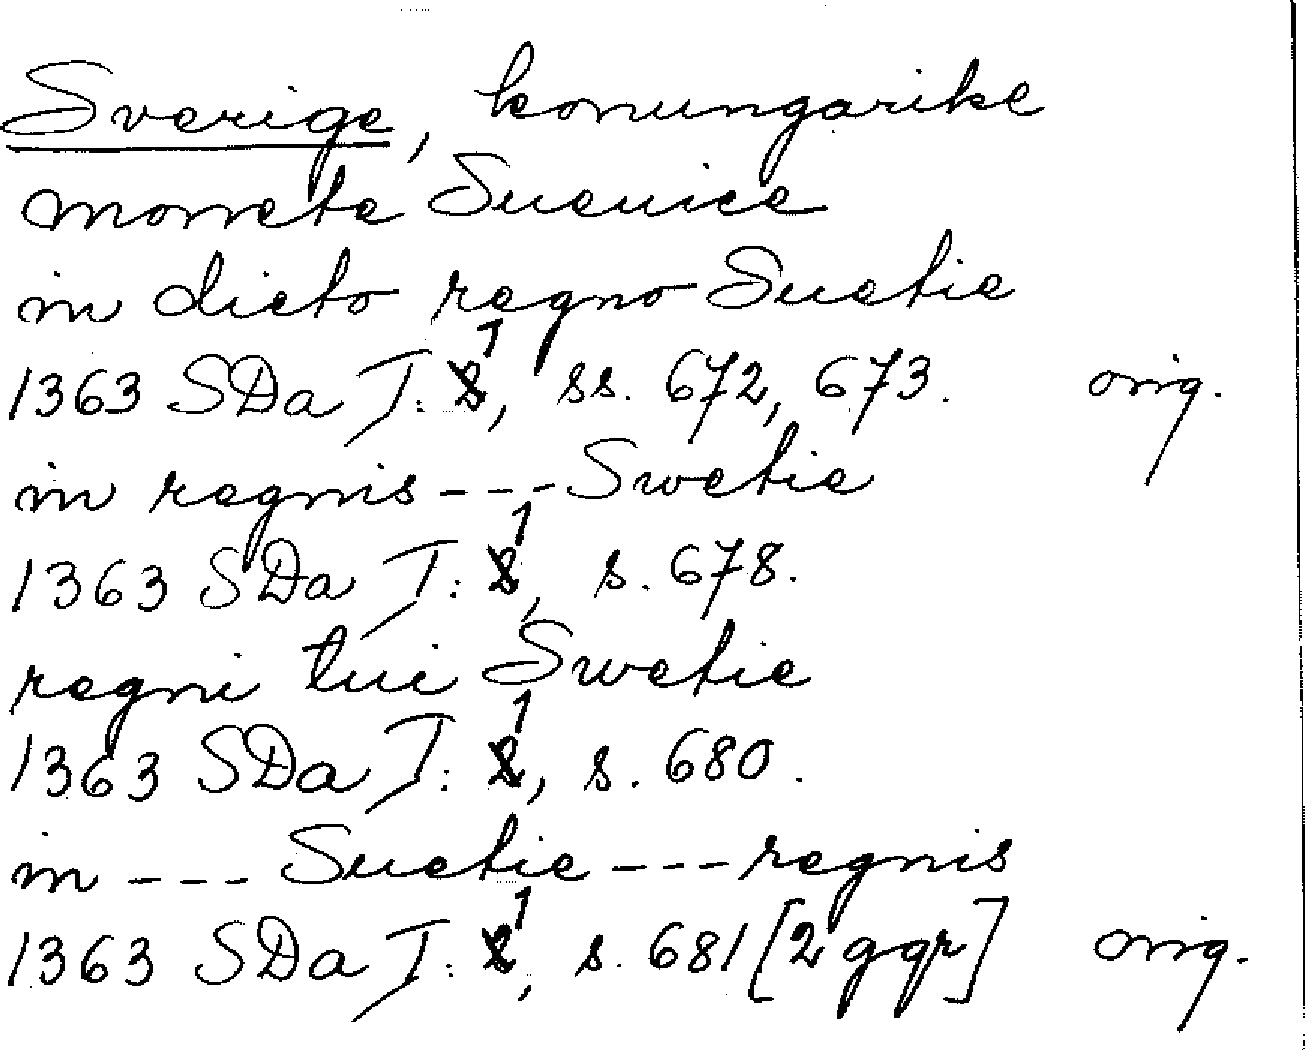 Sverige, konungarike
monete Sueuice
in dicto regno Suetie
1363 SDa I: 1, ss. 672, 673. orig.
in regnis --- Swetie
1363 SDa I: 1, s. 678.
regni tui Swetie
1363 SDa I: 1, s. 680.
in --- Suetie --- regnis
1363 SDa I: 1, s. 681 [2 ggr] orig.